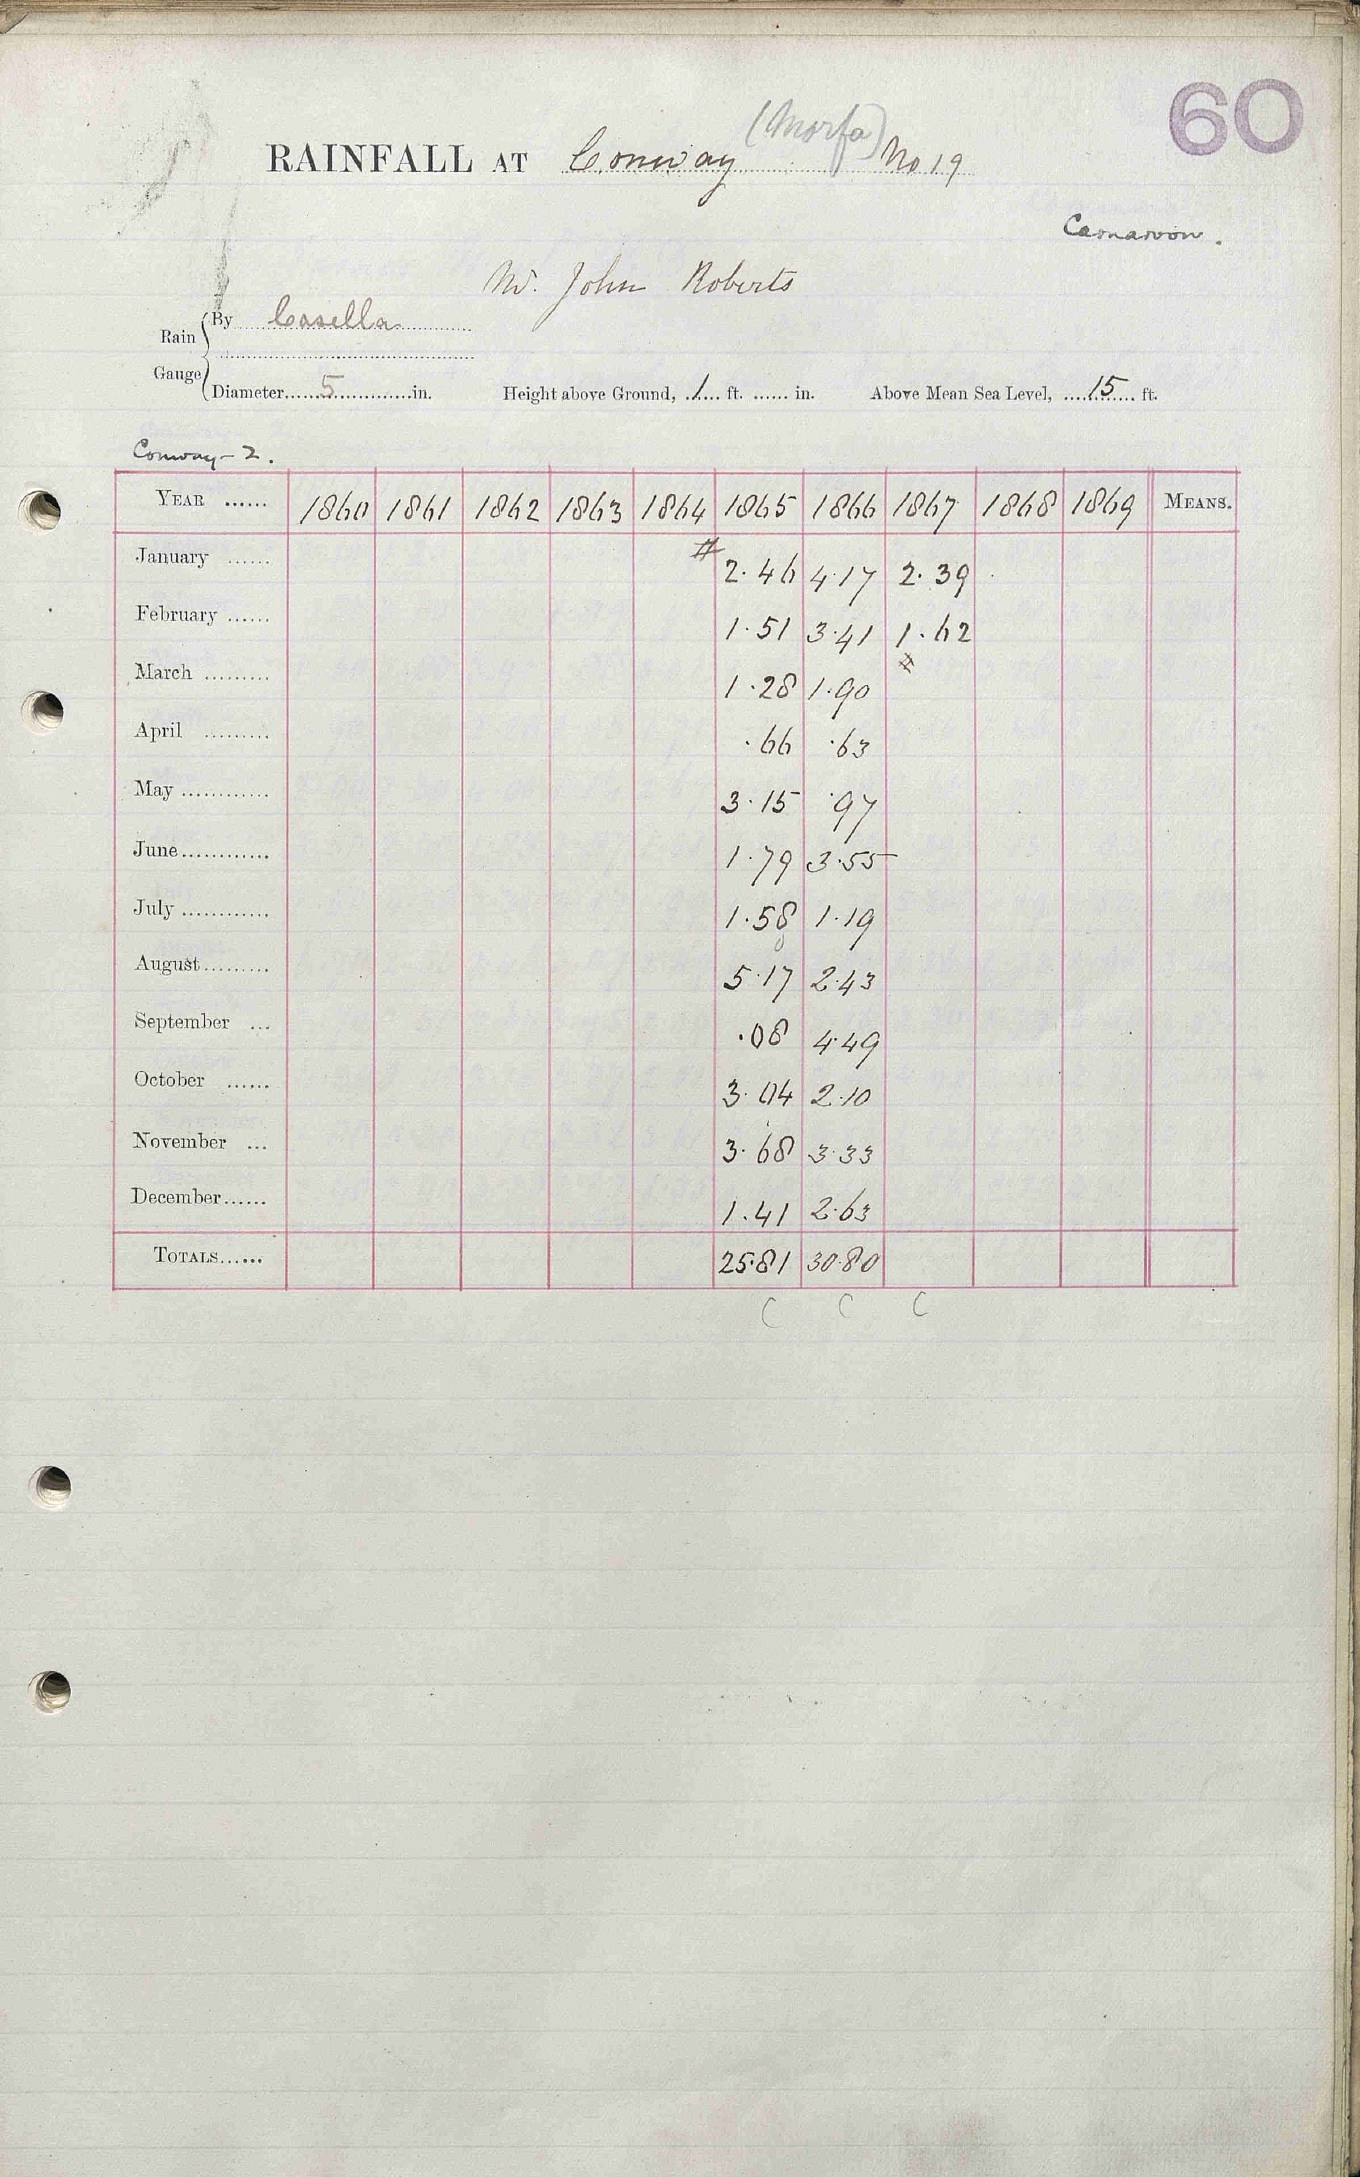 60
RAINFALL AT Conway (Morfa) No 19
Carnarvon.
Mr. John Roberts
Rain Gauge
By Casella
Diameter......5..................in. Height above Ground, ..1... ft. ...... in. Above Mean Sea Level, ....15.... ft.
Conway - 2.
YEAR ...... 1860 1861 1862 1863 1864 1865 1866 1867 1868 1869 MEANS.
January ...... # 2.46 4.17 2.39
February ...... 1.51 3.41 1.62
March ......... 1.28 1.90 #
April ......... .66 .63
May ............ 3.15 .97
June ............ 1.79 3.55
July ............ 1.58 1.19
August ......... 5.17 2.43
September ... .08 4.49
October ...... 3.04 2.10
November ... 3.68 3.33
December ...... 1.41 2.63
TOTALS...... 25.81 30.80
C C C